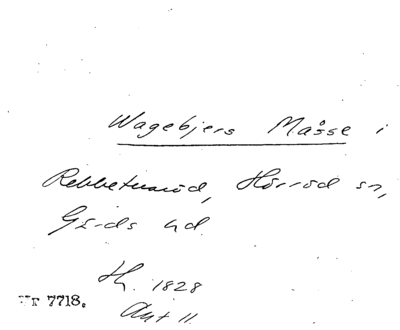 Wagebjers Måsse i
Rebbetuaröd, Hörröd sn,
Gärds hd.
H. 1828
Akt 11.
Nr 7718.